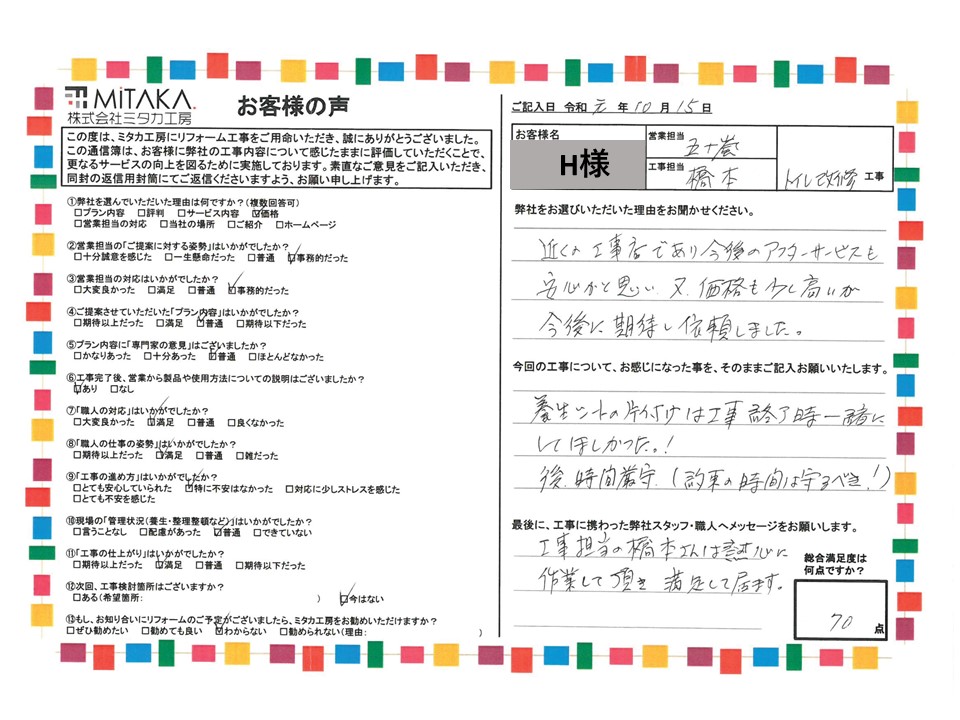 MiTAKA.
株式会社ミタカ工房
お客様の声
この度は、ミタカ工房にリフォーム工事をご用命いただき、誠にありがとうございました。
この通信簿は、お客様に弊社の工事内容について感じたままに評価していただくことで、
更なるサービスの向上を図るために実施しております。素直なご意見をご記入いただき、
同封の返信用封筒にてご返信くださいますよう、お願い申し上げます。
①弊社を選んでいただいた理由は何ですか?(複数回答可)
□プラン内容 □評判 □サービス内容 ☑価格
□営業担当の対応 □当社の場所 □ご紹介 □ホームページ
②営業担当の「ご提案に対する姿勢」はいかがでしたか?
□十分誠意を感じた □一生懸命だった □普通 ☑事務的だった
③営業担当の対応はいかがでしたか?
□大変良かった □満足 □普通 ☑事務的だった
④ご提案させていただいた「プラン内容」はいかがでしたか?
□期待以上だった □満足 ☑普通 □期待以下だった
⑤プラン内容に「専門家の意見」はございましたか?
□かなりあった □十分あった ☑普通 □ほとんどなかった
⑥工事完了後、営業から製品や使用方法についての説明はございましたか?
☑あり □なし
⑦「職人の対応」はいかがでしたか?
□大変良かった ☑満足 □普通 □良くなかった
⑧「職人の仕事の姿勢」はいかがでしたか?
□期待以上だった ☑満足 □普通 □雑だった
⑨「工事の進め方」はいかがでしたか?
□とても安心していられた ☑特に不安はなかった □対応に少しストレスを感じた
□とても不安を感じた
⑩現場の「管理状況(養生・整理整頓など)」はいかがでしたか?
□言うことなし □配慮があった ☑普通 □できていない
⑪「工事の仕上がり」はいかがでしたか?
□期待以上だった ☑満足 □普通 □期待以下だった
⑫次回、工事検討箇所はございますか?
□ある(希望箇所: ) ☑今はない
⑬もし、お知り合いにリフォームのご予定がございましたら、ミタカ工房をお勧めいただけますか?
□ぜひ勧めたい □勧めても良い ☑わからない □勧められない(理由: )
ご記入日 令和 元 年 10 月 15 日
お客様名
H様
営業担当 五十嵐
工事担当 橋本
トイレ改修 工事
弊社をお選びいただいた理由をお聞かせください。
近くの工事店であり今後のアフターサービスも
安心かと思い、又、価格も少し高いが
今後に期待し依頼しました。
今回の工事について、お感じになった事を、そのままご記入お願いいたします。
養生シートの片付けは工事終了時一緒に
してほしかった。!
後、時間厳守(約束の時間は守るべき!)
最後に、工事に携わった弊社スタッフ・職人へメッセージをお願いします。
工事担当の橋本さんは熱心に
作業して頂き満足して居ます。
総合満足度は
何点ですか?
70 点